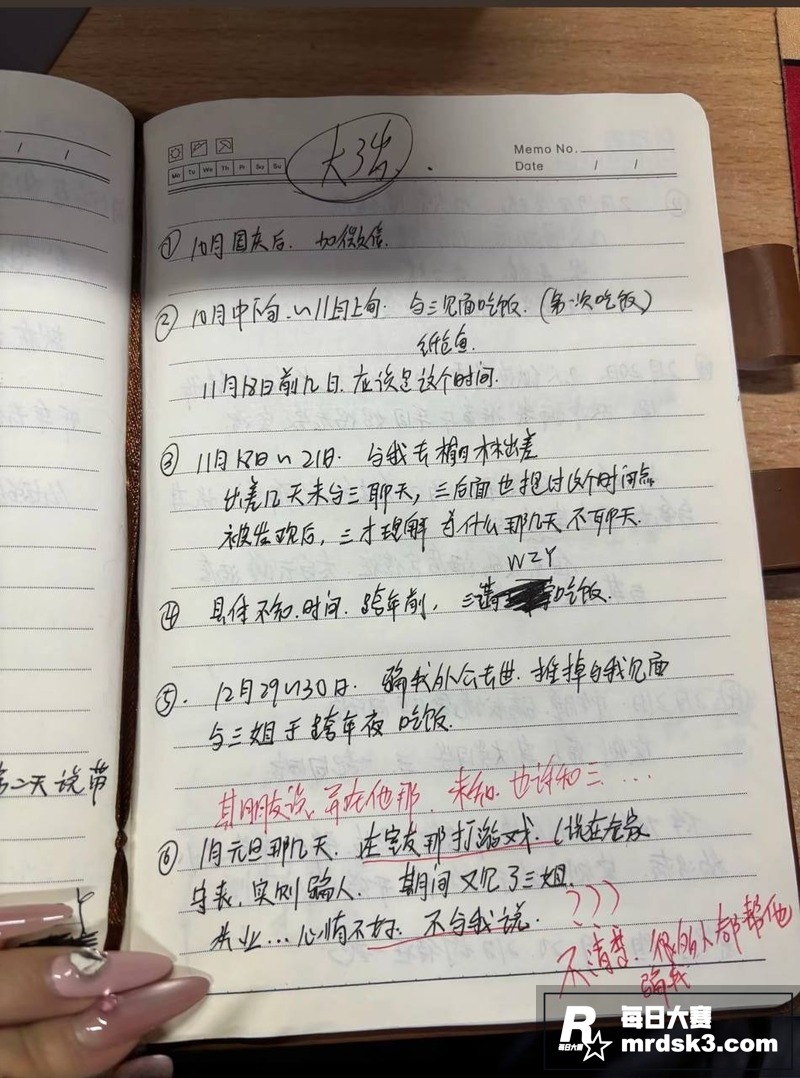 Memo No.
Mo Tu We Th Fr Sa Su
Date / /
大3当.
① 10月国庆后. 加微信.
② 10月中下旬.~11月上旬. 与三见面吃饭.(第一次吃饭)
纸包鱼.
11月18日前几日.应该是这个时间.
③ 11月18日~21日. 与我去榆林出差
出差几天未与三聊天,三后面也提过这个时间点
被发现后,三才理解 为什么那几天不聊天.
WZY
④ 具体不知.时间.跨年前, 三请 吃饭.
⑤. 12月29~30日. 骗我外公去世.推掉与我见面
与三姐于跨年夜吃饭.
其朋友说,并在他那.未知.也许和三...
⑥ 1月元旦那几天. 在室友那打游戏.(说在仓家
守丧,实则骗人. 期间又见了三姐.
失业...心情不好. 不与我说.
???
不清楚.很多人都帮他
骗我
第二天说带
R 每日大赛
每日大赛 mrdsk3.com